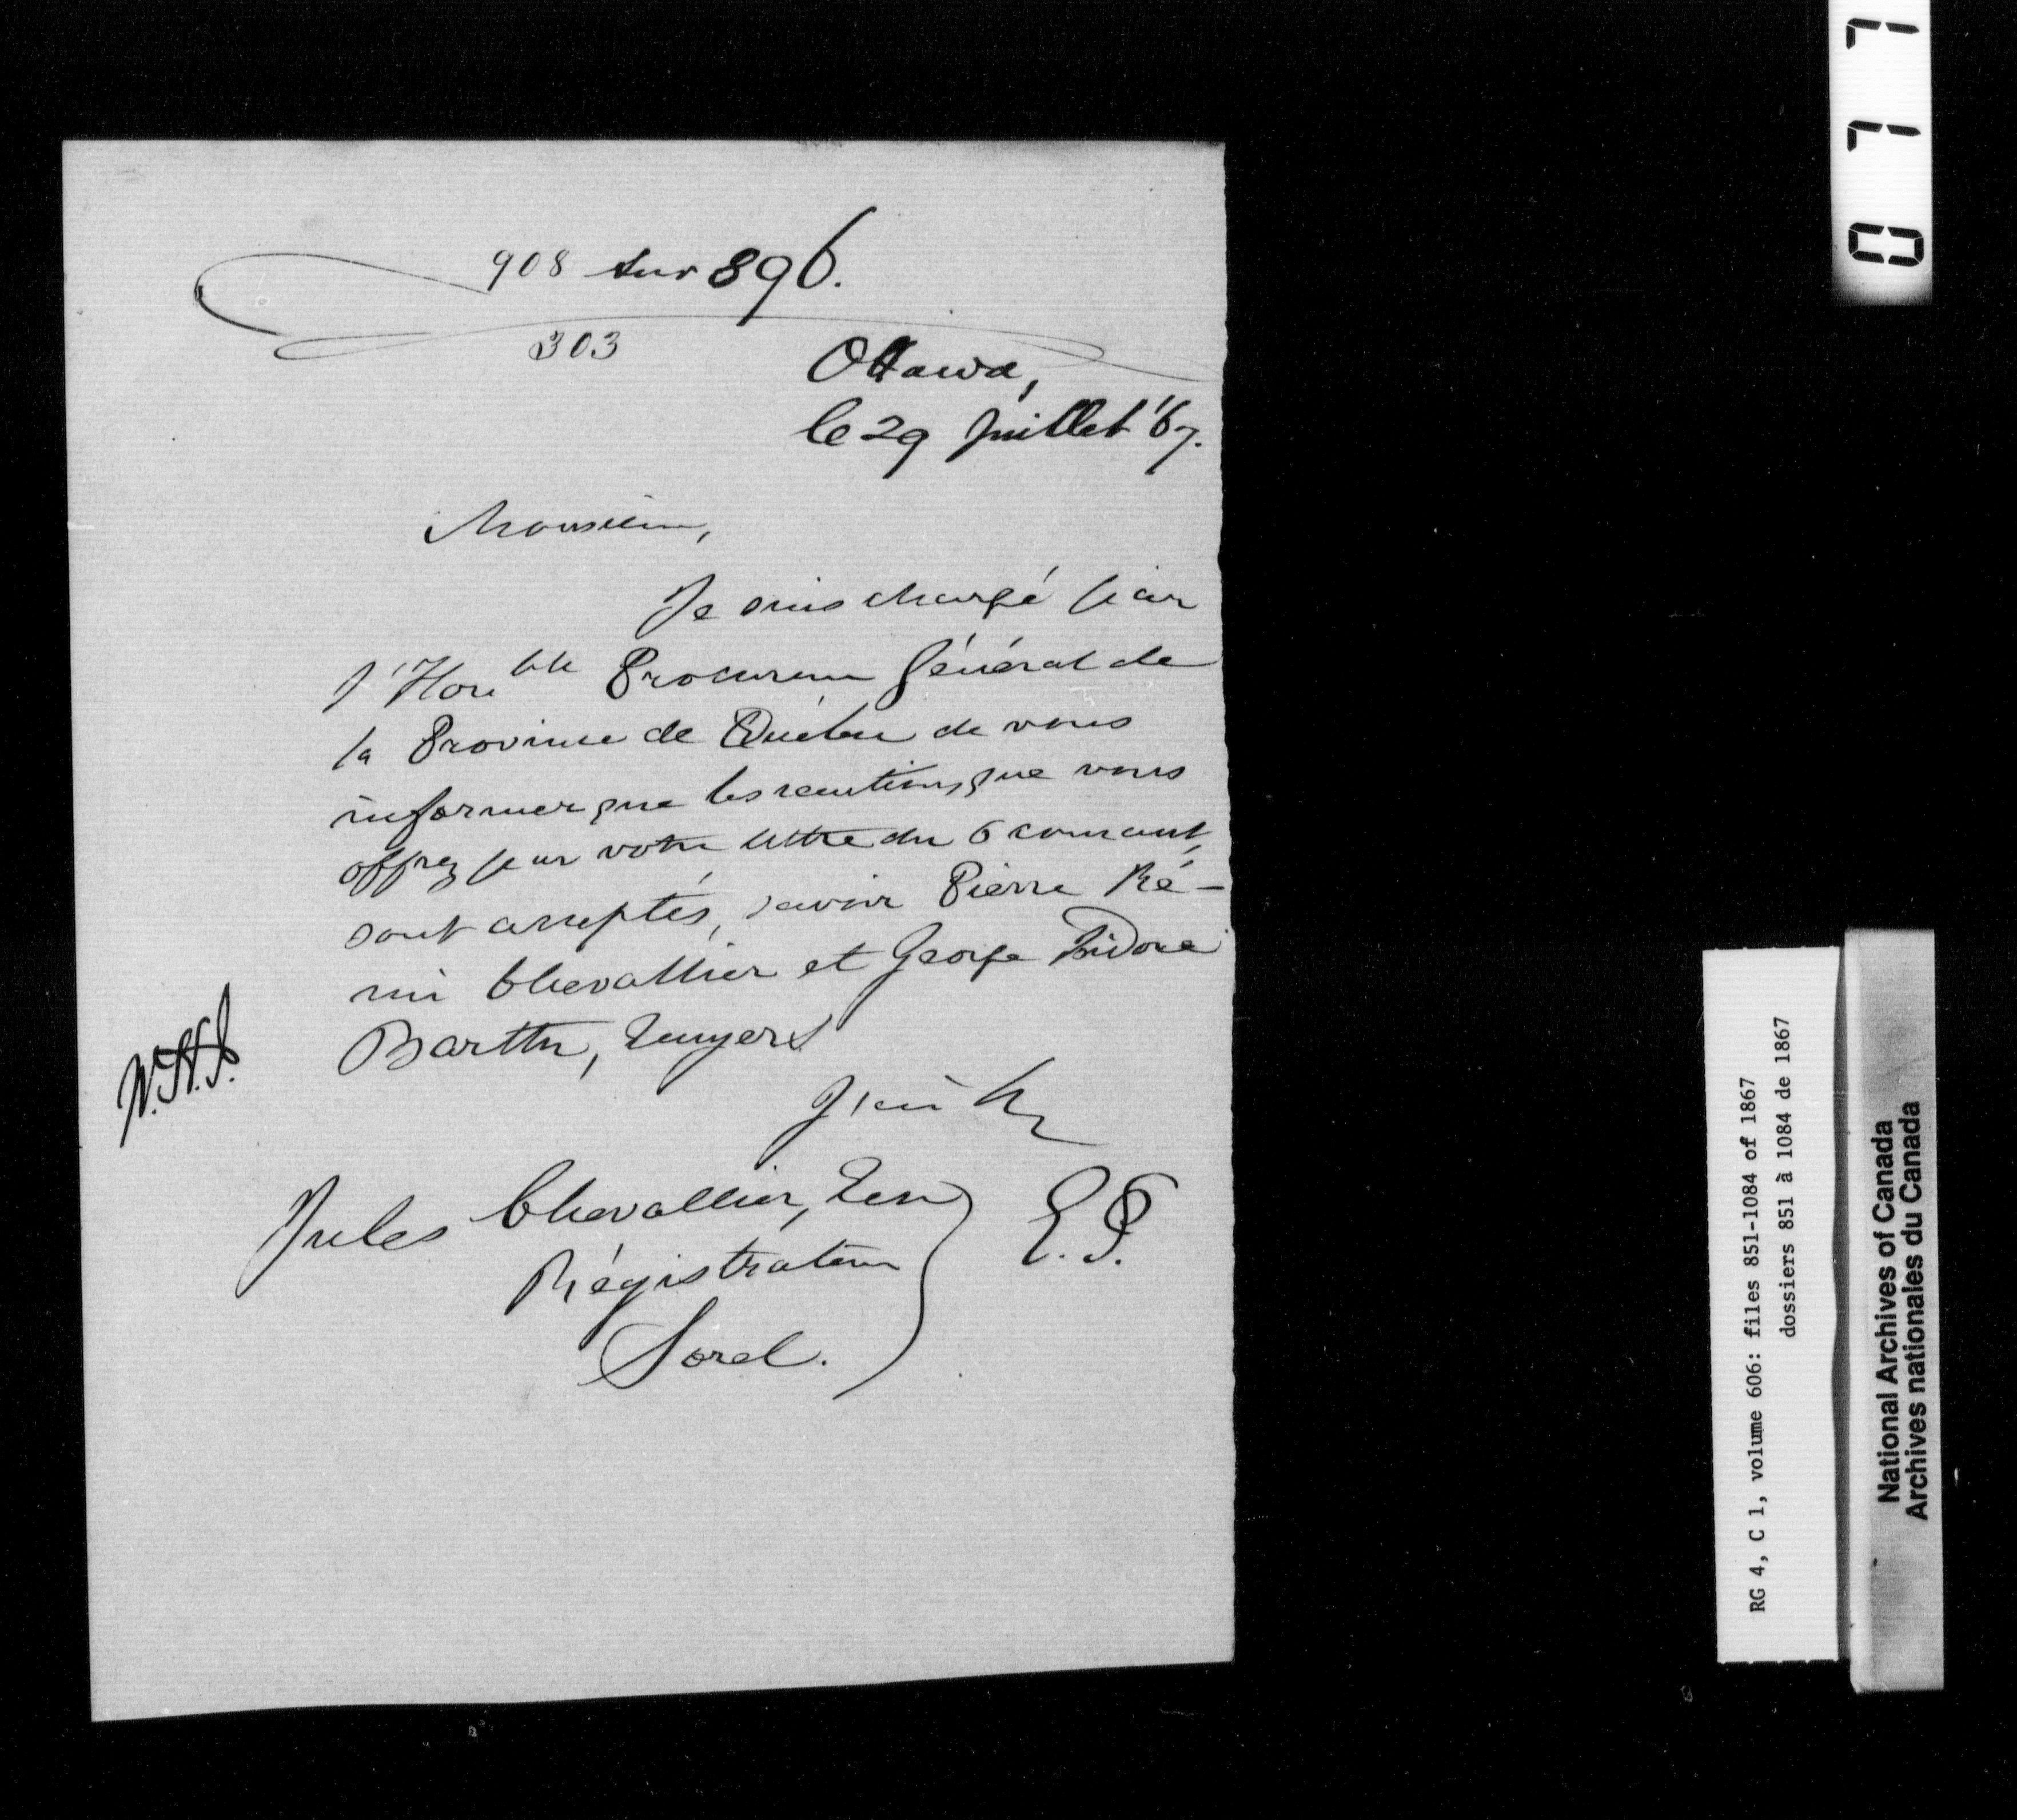 908 sur 896.
303
Ottawa,
le 29 Juillet '67.
Monsieur,
Je suis chargé par
l'Hon ble Procureur Général de
la Province de Québec de vous
informer que les cautions que vous
offrez par votre lettre du 6 courant,
sont acceptés, savoir Pierre Ré-
mi Chevallier et George Isidore
Barthe, Ecuyers
J'ai &c
W.H.J.
Jules Chevallier, Ecr
Régistrateur
Sorel.
E. P.
0 7 7
RG 4, C 1, volume 606: files 851-1084 of 1867
dossiers 851 à 1084 de 1867
National Archives of Canada
Archives nationales du Canada